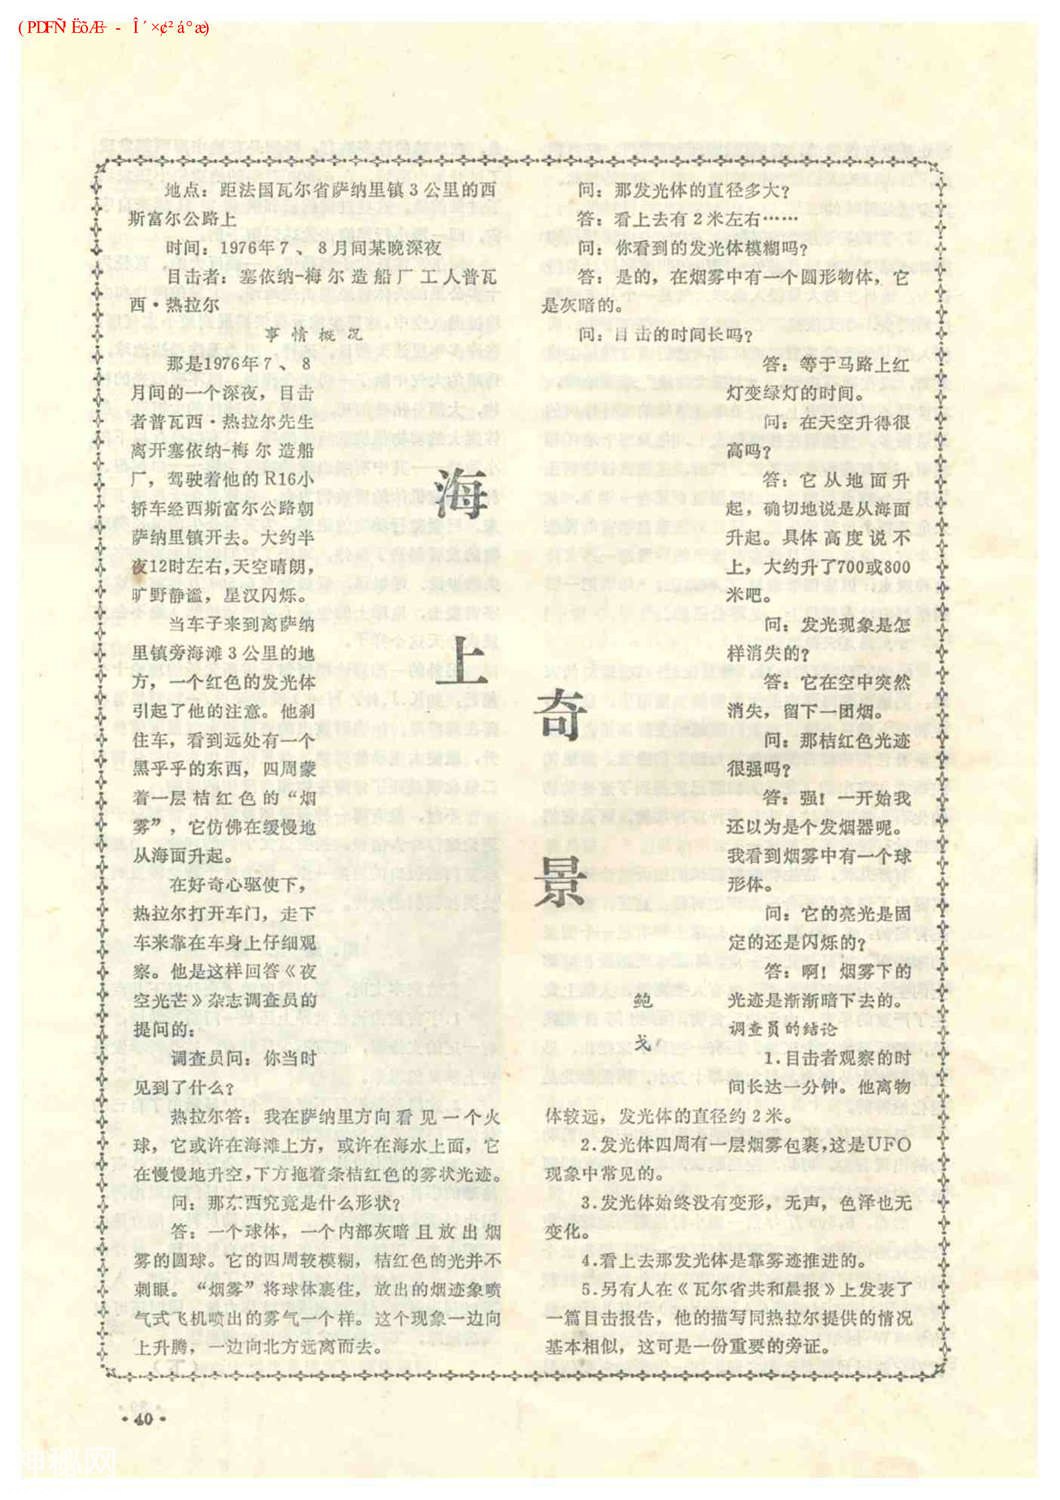 (PDFÑ¹ËõÆ÷ - Î´×¢²á°æ)
地点：距法国瓦尔省萨纳里镇3公里的西
斯富尔公路上
时间：1976年7、8月间某晚深夜
目击者：塞依纳-梅尔造船厂工人普瓦
西·热拉尔
事情概况
那是1976年7、8
月间的一个深夜，目击
者普瓦西·热拉尔先生
离开塞依纳-梅尔造船
厂，驾驶着他的R16小
轿车经西斯富尔公路朝
萨纳里镇开去。大约半
夜12时左右，天空晴朗，
旷野静谧，星汉闪烁。
当车子来到离萨纳
里镇旁海滩3公里的地
方，一个红色的发光体
引起了他的注意。他刹
住车，看到远处有一个
黑乎乎的东西，四周蒙
着一层桔红色的“烟
雾”，它仿佛在缓慢地
从海面升起。
在好奇心驱使下，
热拉尔打开车门，走下
车来靠在车身上仔细观
察。他是这样回答《夜
空光芒》杂志调查员的
提问的：
调查员问：你当时
见到了什么？
热拉尔答：我在萨纳里方向看见一个火
球，它或许在海滩上方，或许在海水上面，它
在慢慢地升空，下方拖着条桔红色的雾状光迹。
问：那东西究竟是什么形状？
答：一个球体，一个内部灰暗且放出烟
雾的圆球。它的四周较模糊，桔红色的光并不
刺眼。“烟雾”将球体裹住，放出的烟迹象喷
气式飞机喷出的雾气一个样。这个现象一边向
上升腾，一边向北方远离而去。
海
上
奇
景
鲍
戈
问：那发光体的直径多大？
答：看上去有2米左右……
问：你看到的发光体模糊吗？
答：是的，在烟雾中有一个圆形物体，它
是灰暗的。
问：目击的时间长吗？
答：等于马路上红
灯变绿灯的时间。
问：在天空升得很
高吗？
答：它从地面升
起，确切地说是从海面
升起。具体高度说不
上，大约升了700或800
米吧。
问：发光现象是怎
样消失的？
答：它在空中突然
消失，留下一团烟。
问：那桔红色光迹
很强吗？
答：强！一开始我
还以为是个发烟器呢。
我看到烟雾中有一个球
形体。
问：它的亮光是固
定的还是闪烁的？
答：啊！烟雾下的
光迹是渐渐暗下去的。
调查员的结论
1.目击者观察的时
间长达一分钟。他离物
体较远，发光体的直径约2米。
2.发光体四周有一层烟雾包裹，这是UFO
现象中常见的。
3.发光体始终没有变形，无声，色泽也无
变化。
4.看上去那发光体是靠雾迹推进的。
5.另有人在《瓦尔省共和晨报》上发表了
一篇目击报告，他的描写同热拉尔提供的情况
基本相似，这可是一份重要的旁证。
·40·